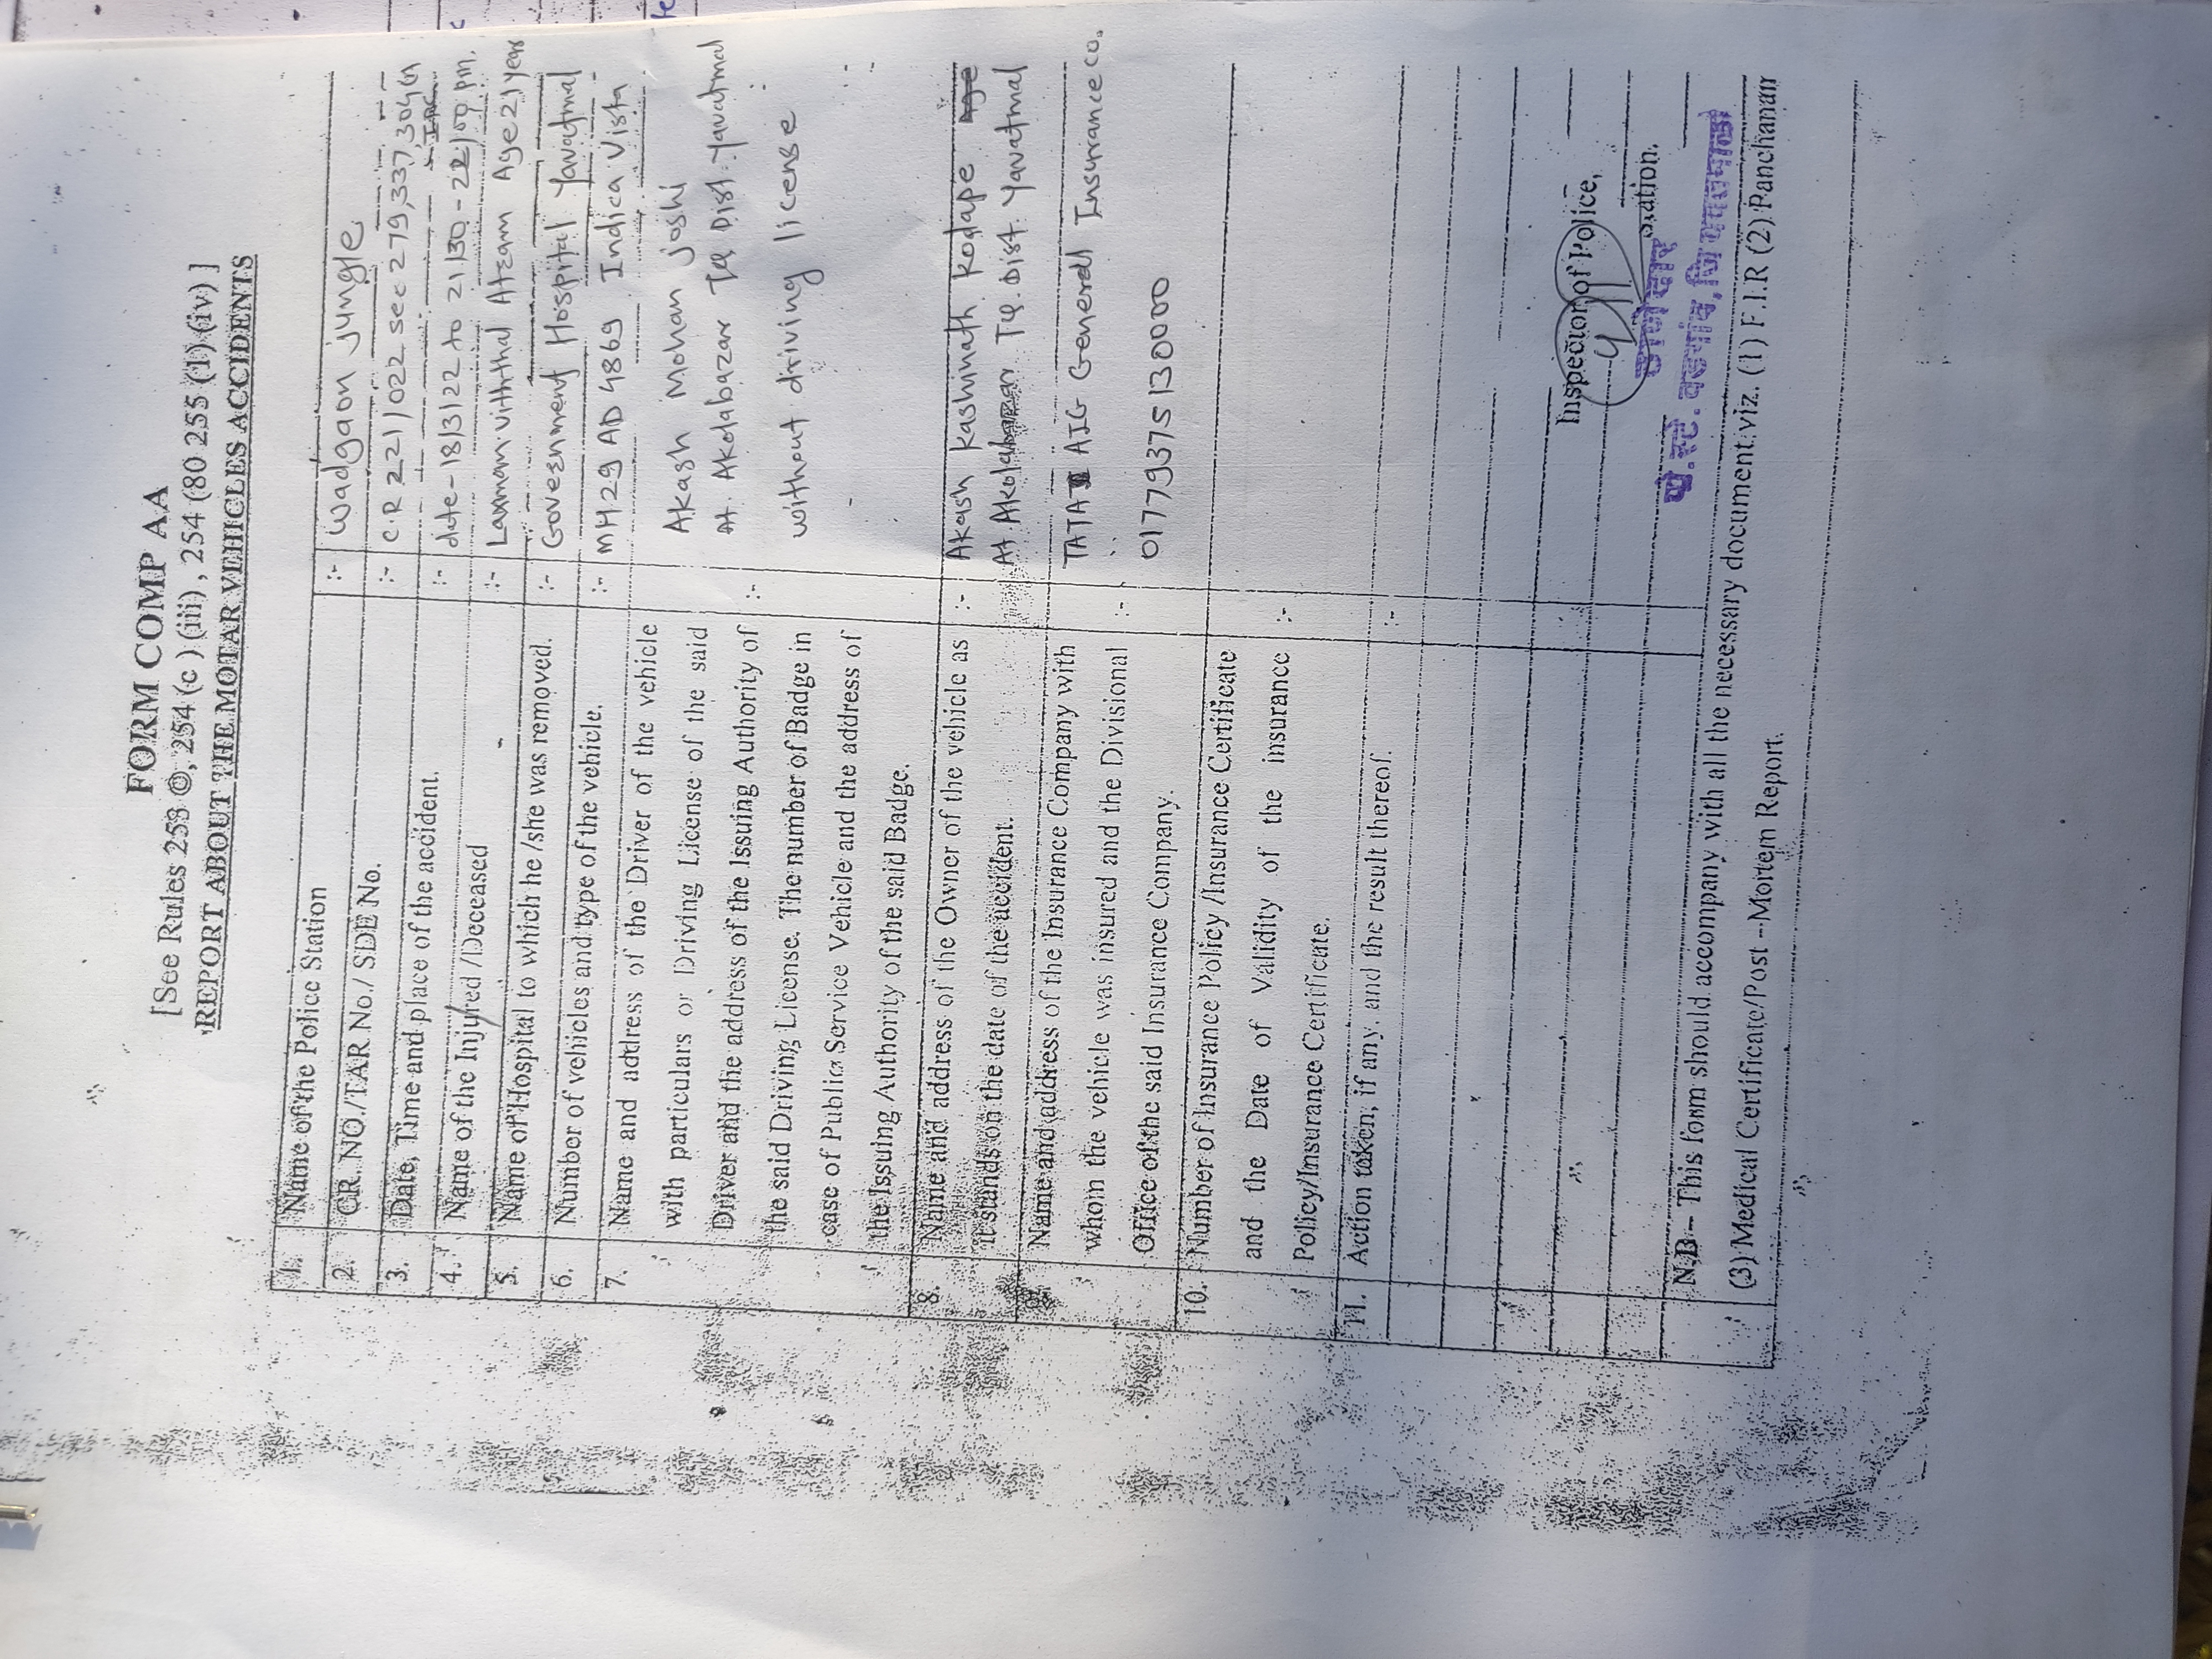 FORM COMP AA
[See Rules 253 ©, 254 (c ) (iii) , 254 (80 255 (1) (iv) ]
REPORT ABOUT THE MOTAR VEHICLES ACCIDENTS
1. Name of the Police Station :- Wadgaon jungle
2. CR. NO./TAR No./ SDE No. :- C.R 221/022 sec 279,337,304(A) IPC
3. Date, Time and place of the accident. :- date-18/3/22 to 21/30-22/00 pm.
4. Name of the Injured /Deceased :- Laxman viththal Atram Age 21 year
5. Name of Hospital to which he /she was removed. :- Government Hospital Yavatmal
6. Number of vehicles and type of the vehicle. :- MH29 AD 4869 Indica Vista
7. Name and address of the Driver of the vehicle
with particulars or Driving License of the said Akash Mohan joshi
Driver and the address of the Issuing Authority of :- At. Akolabazar Tq Dist. Yavatmal
the said Driving License. The number of Badge in
case of Public Service Vehicle and the address of without driving license
the Issuing Authority of the said Badge.
8. Name and address of the Owner of the vehicle as :- Akash kashinath kodape
it stands on the date of the accident. At. Tq. Dist. Yavatmal
Name and address of the Insurance Company with TATA AIG General Insurance co.
whom the vehicle was insured and the Divisional :-
Office of the said Insurance Company. 01779375130000
10. Number of Insurance Policy /Insurance Certificate
and the Date of Validity of the insurance :-
Policy/Insurance Certificate.
11. Action taken, if any, and the result thereof. :-
Inspector of Police,
Station.
ठाणेदार
पो.स्टे. वडगांव, जि. यवतमाळ
N.B – This form should accompany with all the necessary document viz. (1) F.I.R (2) Panchanama
(3) Medical Certificate/Post –Mortem Report.